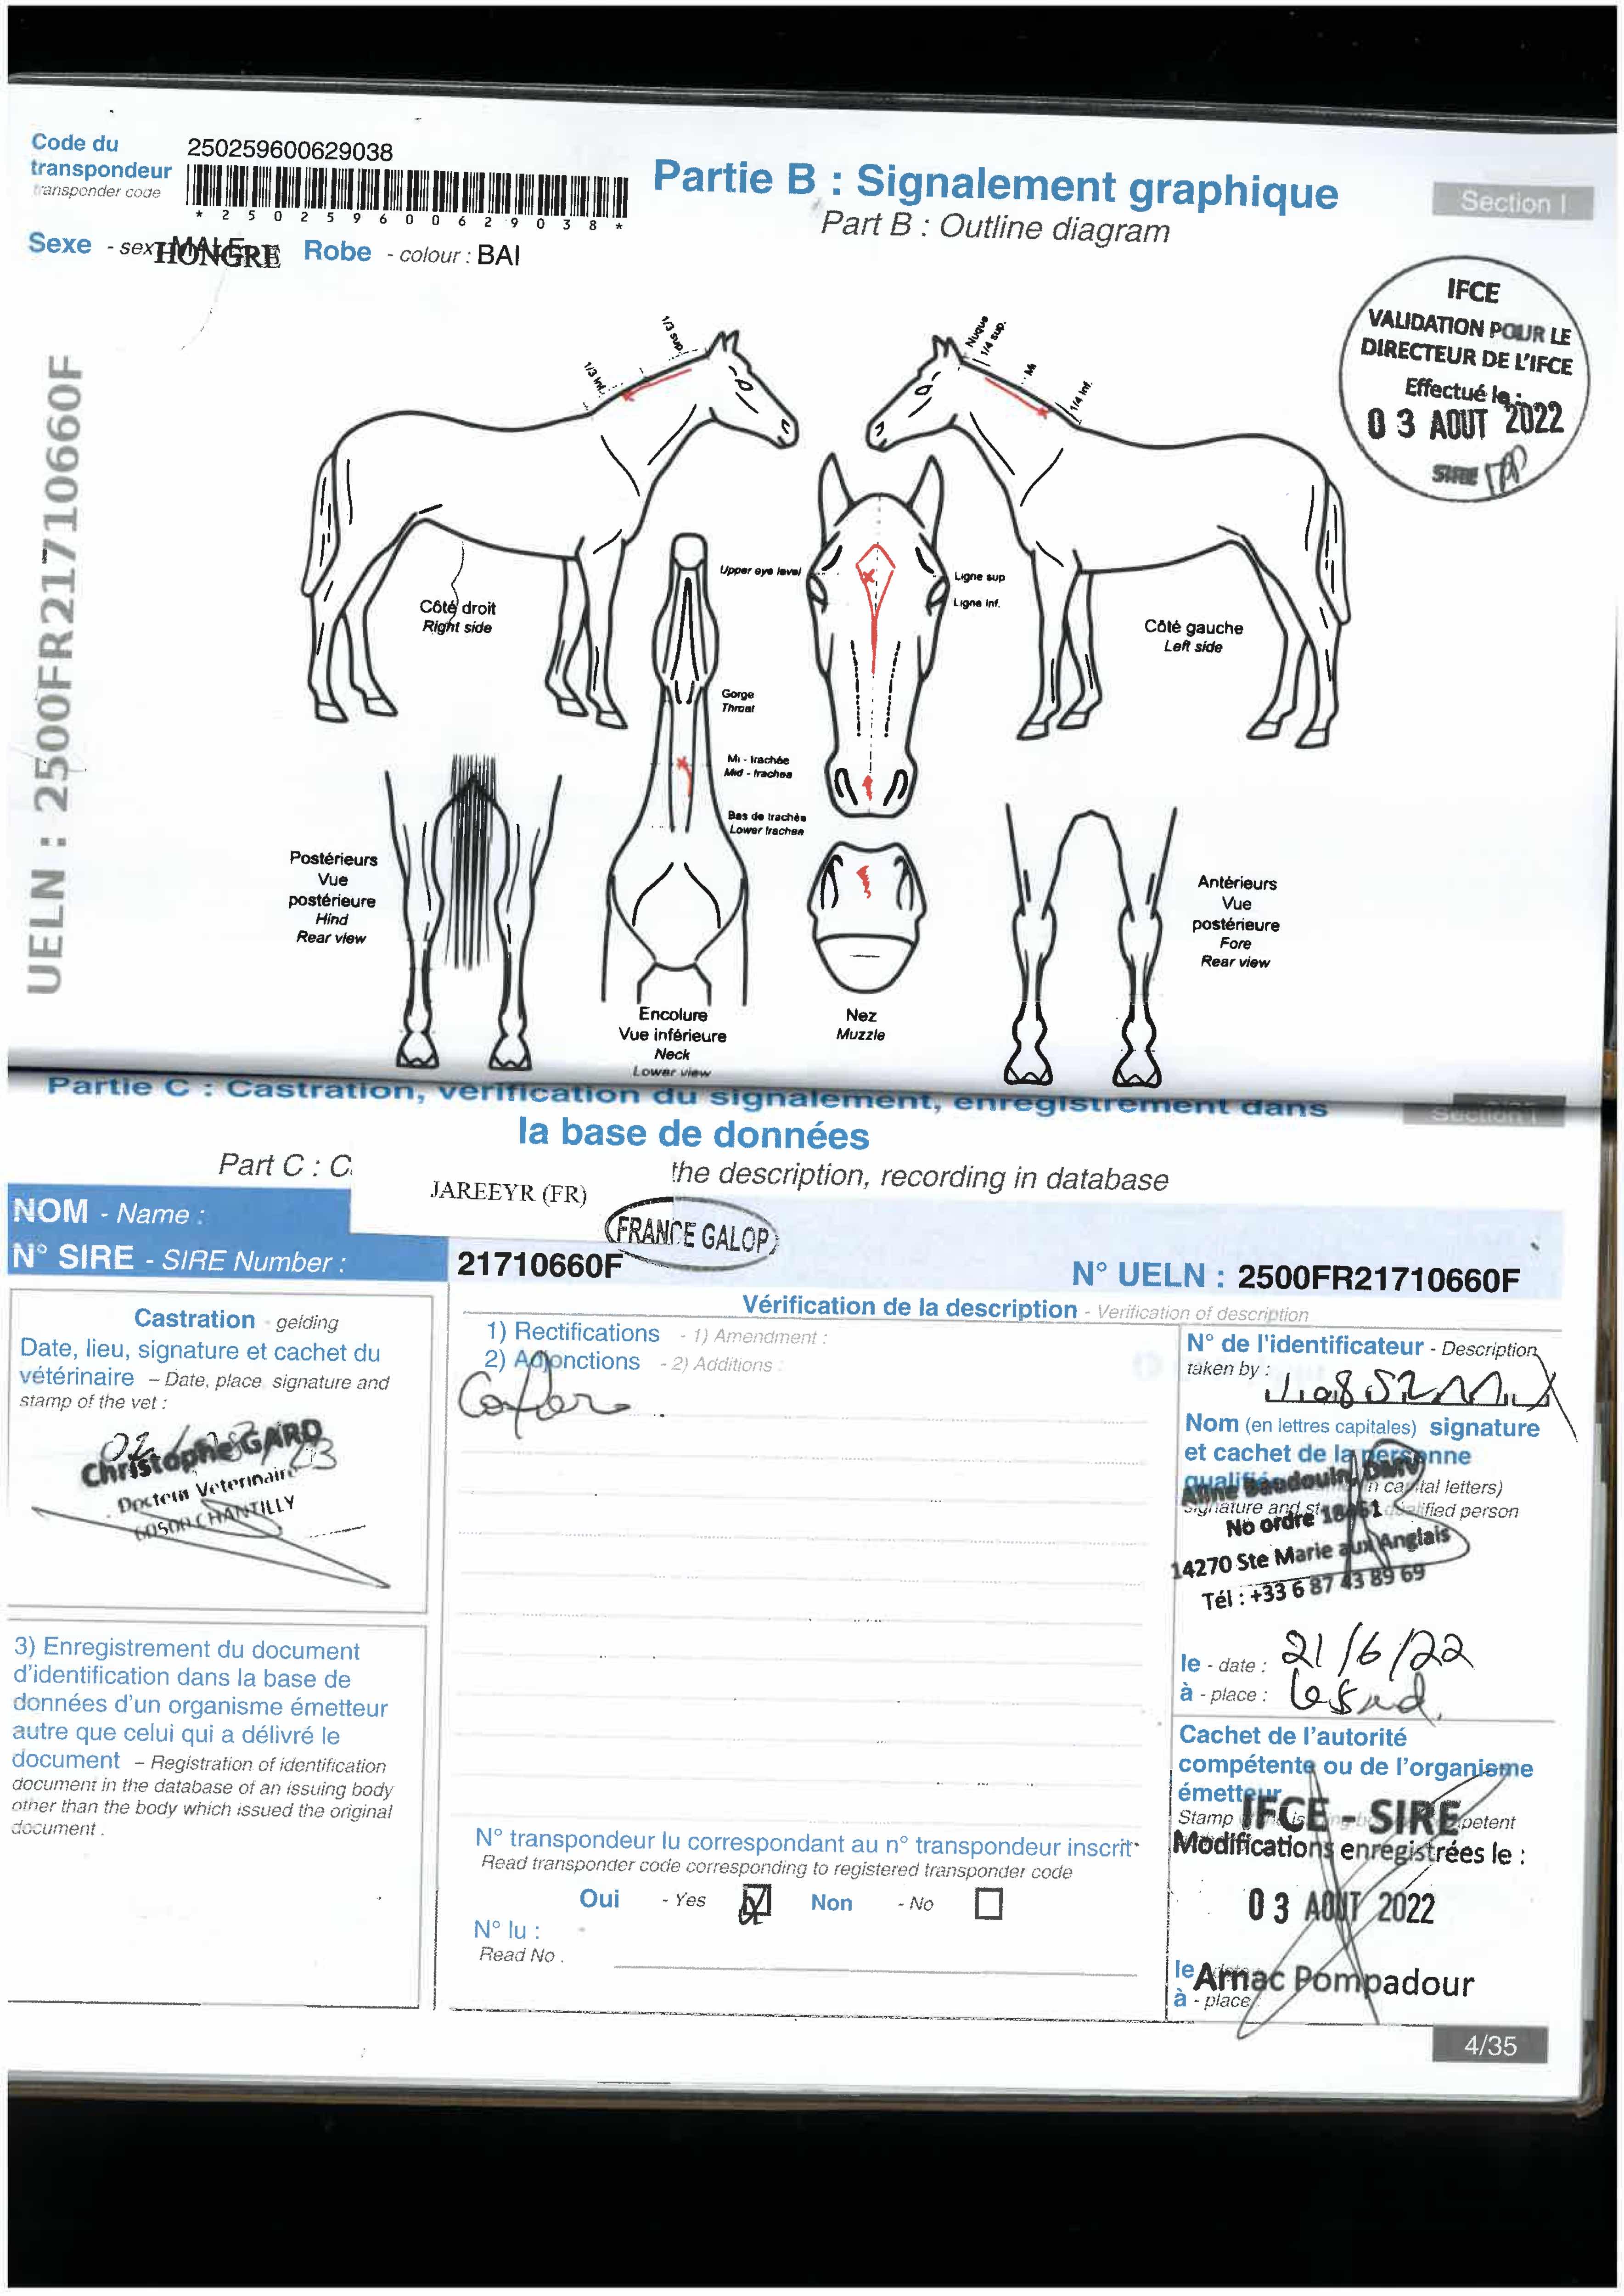 Code du
transpondeur
transponder code
250259600629038
* 2 5 0 2 5 9 6 0 0 6 2 9 0 3 8 *
Partie B : Signalement graphique
Part B : Outline diagram
Section I
Sexe - sex
MALE
HONGRE
Robe - colour : BAI
IFCE
VALIDATION POUR LE
DIRECTEUR DE L'IFCE
Effectué le :
03 AOUT 2022
SIRE
UELN : 2500FR21710660F
1/3 sup.
1/3 inf.
Nuque
1/4 sup.
Mi
1/4 inf.
Côté droit
Right side
Upper eye level
Ligne sup
Ligne Inf.
Côté gauche
Left side
Gorge
Throat
Mi - trachée
Mid - trachea
Bas de trachée
Lower trachea
Postérieurs
Vue
postérieure
Hind
Rear view
Antérieurs
Vue
postérieure
Fore
Rear view
Encolure
Vue inférieure
Neck
Lower view
Nez
Muzzle
Partie C : Castration, vérification du signalement, enregistrement dans
la base de données
Section I
Part C : C
the description, recording in database
NOM - Name :
JAREEYR (FR)
FRANCE GALOP
N° SIRE - SIRE Number :
21710660F
N° UELN : 2500FR21710660F
Castration - gelding
Date, lieu, signature et cachet du
vétérinaire – Date, place, signature and
stamp of the vet :
Christophe GARD
Docteur Vétérinaire
60500 CHANTILLY
3) Enregistrement du document
d'identification dans la base de
données d'un organisme émetteur
autre que celui qui a délivré le
document – Registration of identification
document in the database of an issuing body
other than the body which issued the original
document .
Vérification de la description - Verification of description
1) Rectifications - 1) Amendment :
2) Adjonctions - 2) Additions :
N° transpondeur lu correspondant au n° transpondeur inscrit
Read transponder code corresponding to registered transponder code
Oui - Yes
Non - No
N° lu :
Read No .
N° de l'identificateur - Description
taken by :
Nom (en lettres capitales) signature
et cachet de la personne
qualifiée
(in capital letters)
Signature and qualified person
Aline Baudouin, DMV
No ordre 18461
14270 Ste Marie aux Anglais
Tél : +33 6 87 43 89 69
le - date : 21/6/22
à - place :
Cachet de l'autorité
compétente ou de l'organisme
émetteur
Stamp
IFCE - SIRE
Modifications enregistrées le :
03 AOUT 2022
le
Arnac Pompadour
à - place
4/35